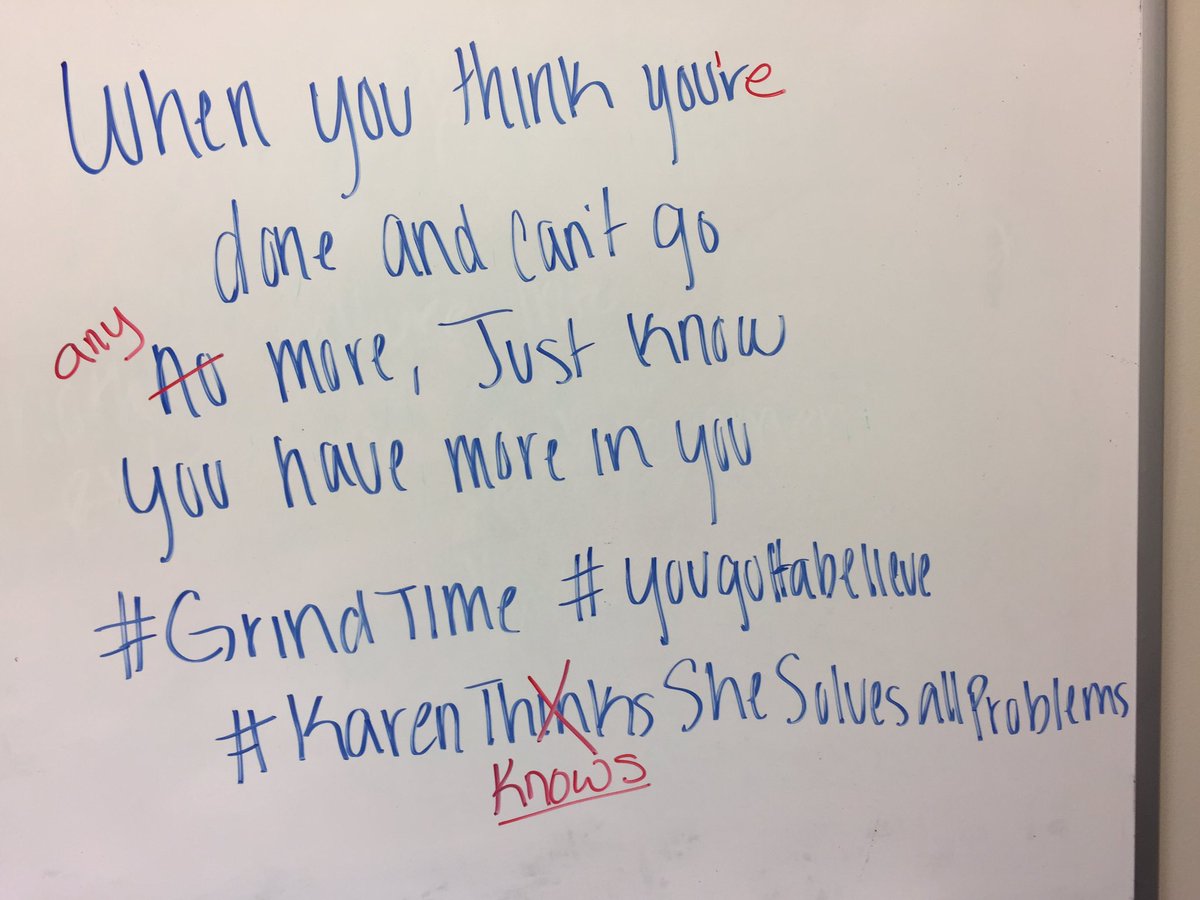 When you think you're
done and can't go
any no more, Just know
you have more in you
#GrindTime #yougottabelieve
#KarenThinksSheSolvesallProblems
Knows